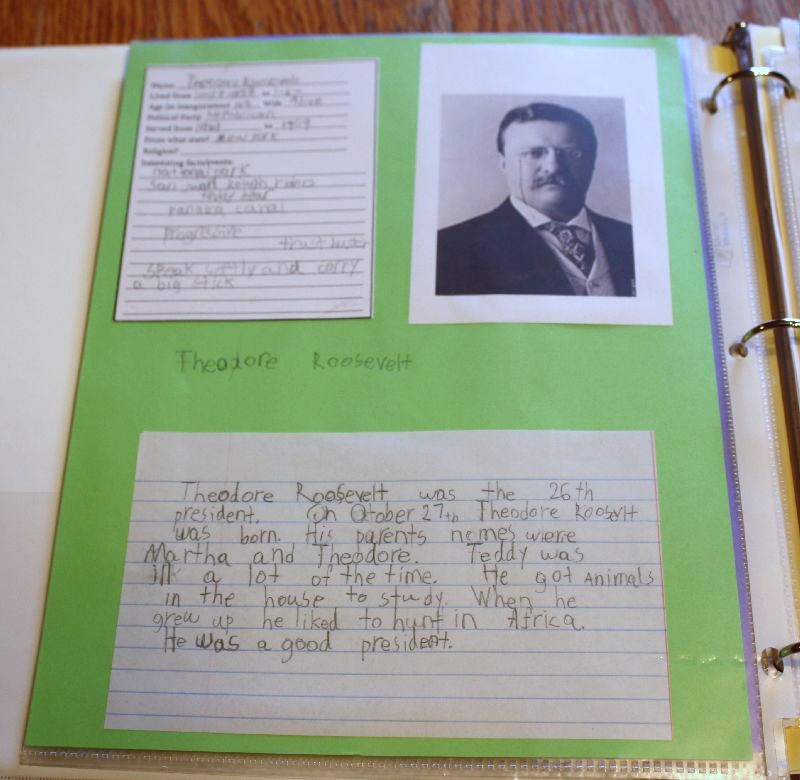 Name:
Lived from to
Age (at inauguration) Wife Alice
Political Party
Served from to 1909
From what state? New York
Religion?
Interesting facts/events:
national park
San Juan Rough riders
teddy bear
panama canal
Progressive
trust buster
speak softly and carry
a big stick
Theodore Roosevelt
Theodore Roosevelt was the 26th
president. On Otober 27th Theodore Roosvlt
was born. His parents nemes were
Martha and Theodore. Teddy was
Ill a lot of the time. He got Animals
in the house to study. When he
grew up he liked to hunt in Africa.
He was a good president.